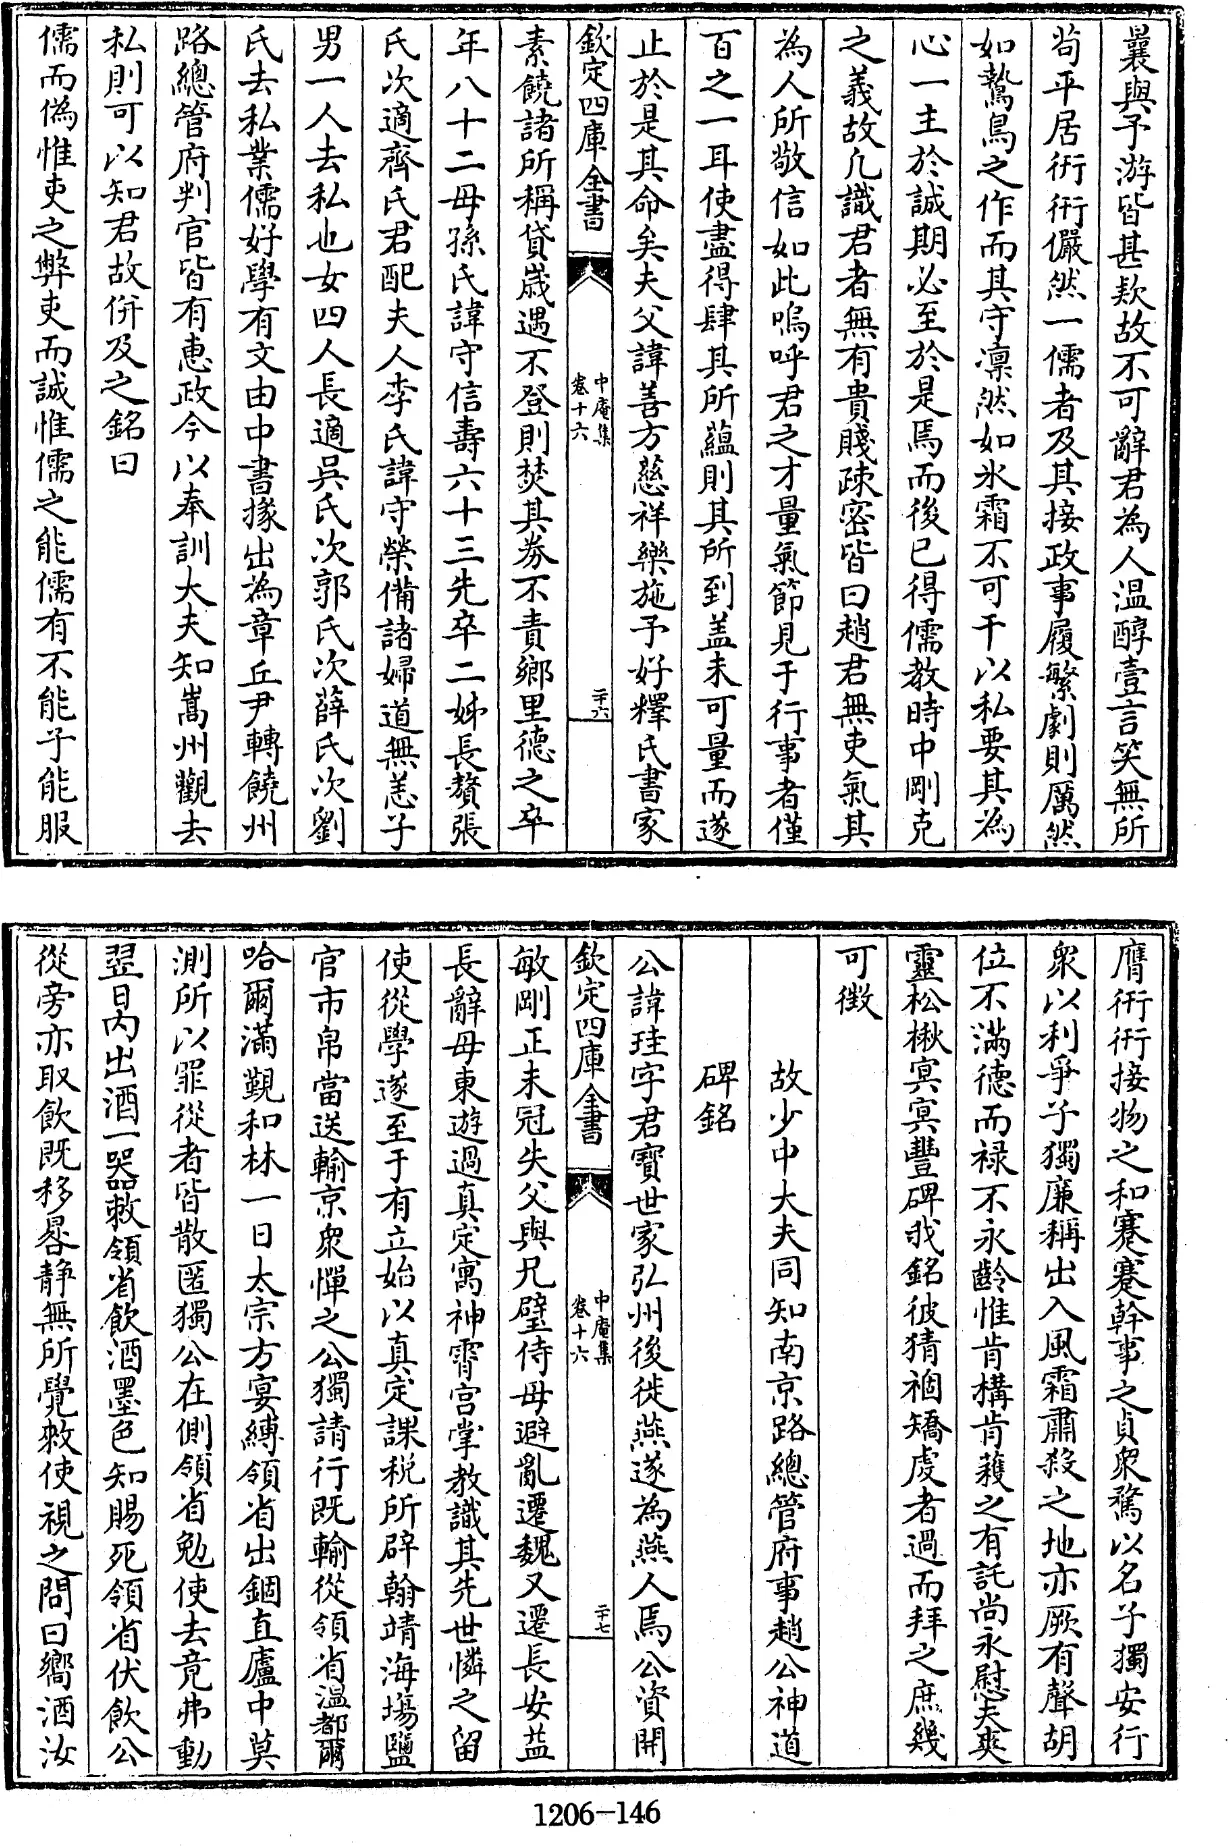 曩與予游皆甚欵故不可辭君為人温醇壹言笑無所
苟平居衎衎儼然一儒者及其接政事履繁劇則厲然
如鷙鳥之作而其守凛然如氷霜不可干以私要其為
心一主於誠期必至於是焉而後已得儒教時中剛克
之義故凡識君者無有貴賤疎密皆曰趙君無吏氣其
為人所敬信如此嗚呼君之才量氣節見于行事者僅
百之一耳使盡得肆其所蘊則其所到盖未可量而遂
止於是其命矣夫父諱善方慈祥樂施予好釋氏書家
欽定四庫全書
中庵集
卷十六
二十六
素饒諸所稱貸歳遇不登則焚其券不責鄉里德之卒
年八十二母孫氏諱守信壽六十三先卒二姊長贅張
氏次適齊氏君配夫人李氏諱守榮備諸婦道無恙子
男一人去私也女四人長適吳氏次郭氏次薛氏次劉
氏去私業儒好學有文由中書掾出為章丘尹轉饒州
路總管府判官皆有惠政今以奉訓大夫知嵩州觀去
私則可以知君故併及之銘曰
儒而偽惟吏之弊吏而誠惟儒之能儒有不能子能服
膺衎衎接物之和蹇蹇幹事之貞衆騖以名子獨安行
衆以利爭子獨廉稱出入風霜肅殺之地亦厥有聲胡
位不滿德而禄不永齡惟肯構肯穫之有託尚永慰夫爽
靈松楸冥冥豐碑我銘彼猜禍矯虔者過而拜之庶幾
可徴
故少中大夫同知南京路總管府事趙公神道
碑銘
公諱珪字君寶世家弘州後徙燕遂為燕人焉公資開
欽定四庫全書
中庵集
卷十六
二十七
敏剛正未冠失父與兄璧侍母避亂遷魏又遷長安益
長辭母東遊過真定寓神霄宫掌教識其先世憐之留
使從學遂至于有立始以真定課税所辟翰靖海塲鹽
官市帛當送輸京衆憚之公獨請行既輸從領省温都爾
哈爾滿觀和林一日太宗方宴縛領省出錮直廬中莫
測所以罪從者皆散匿獨公在側領省勉使去竟弗動
翌日内出酒一器敕領省飲酒墨色知賜死領省伏飲公
從旁亦取飲既移晷静無所覺敕使視之問曰嚮酒汝
1206-146